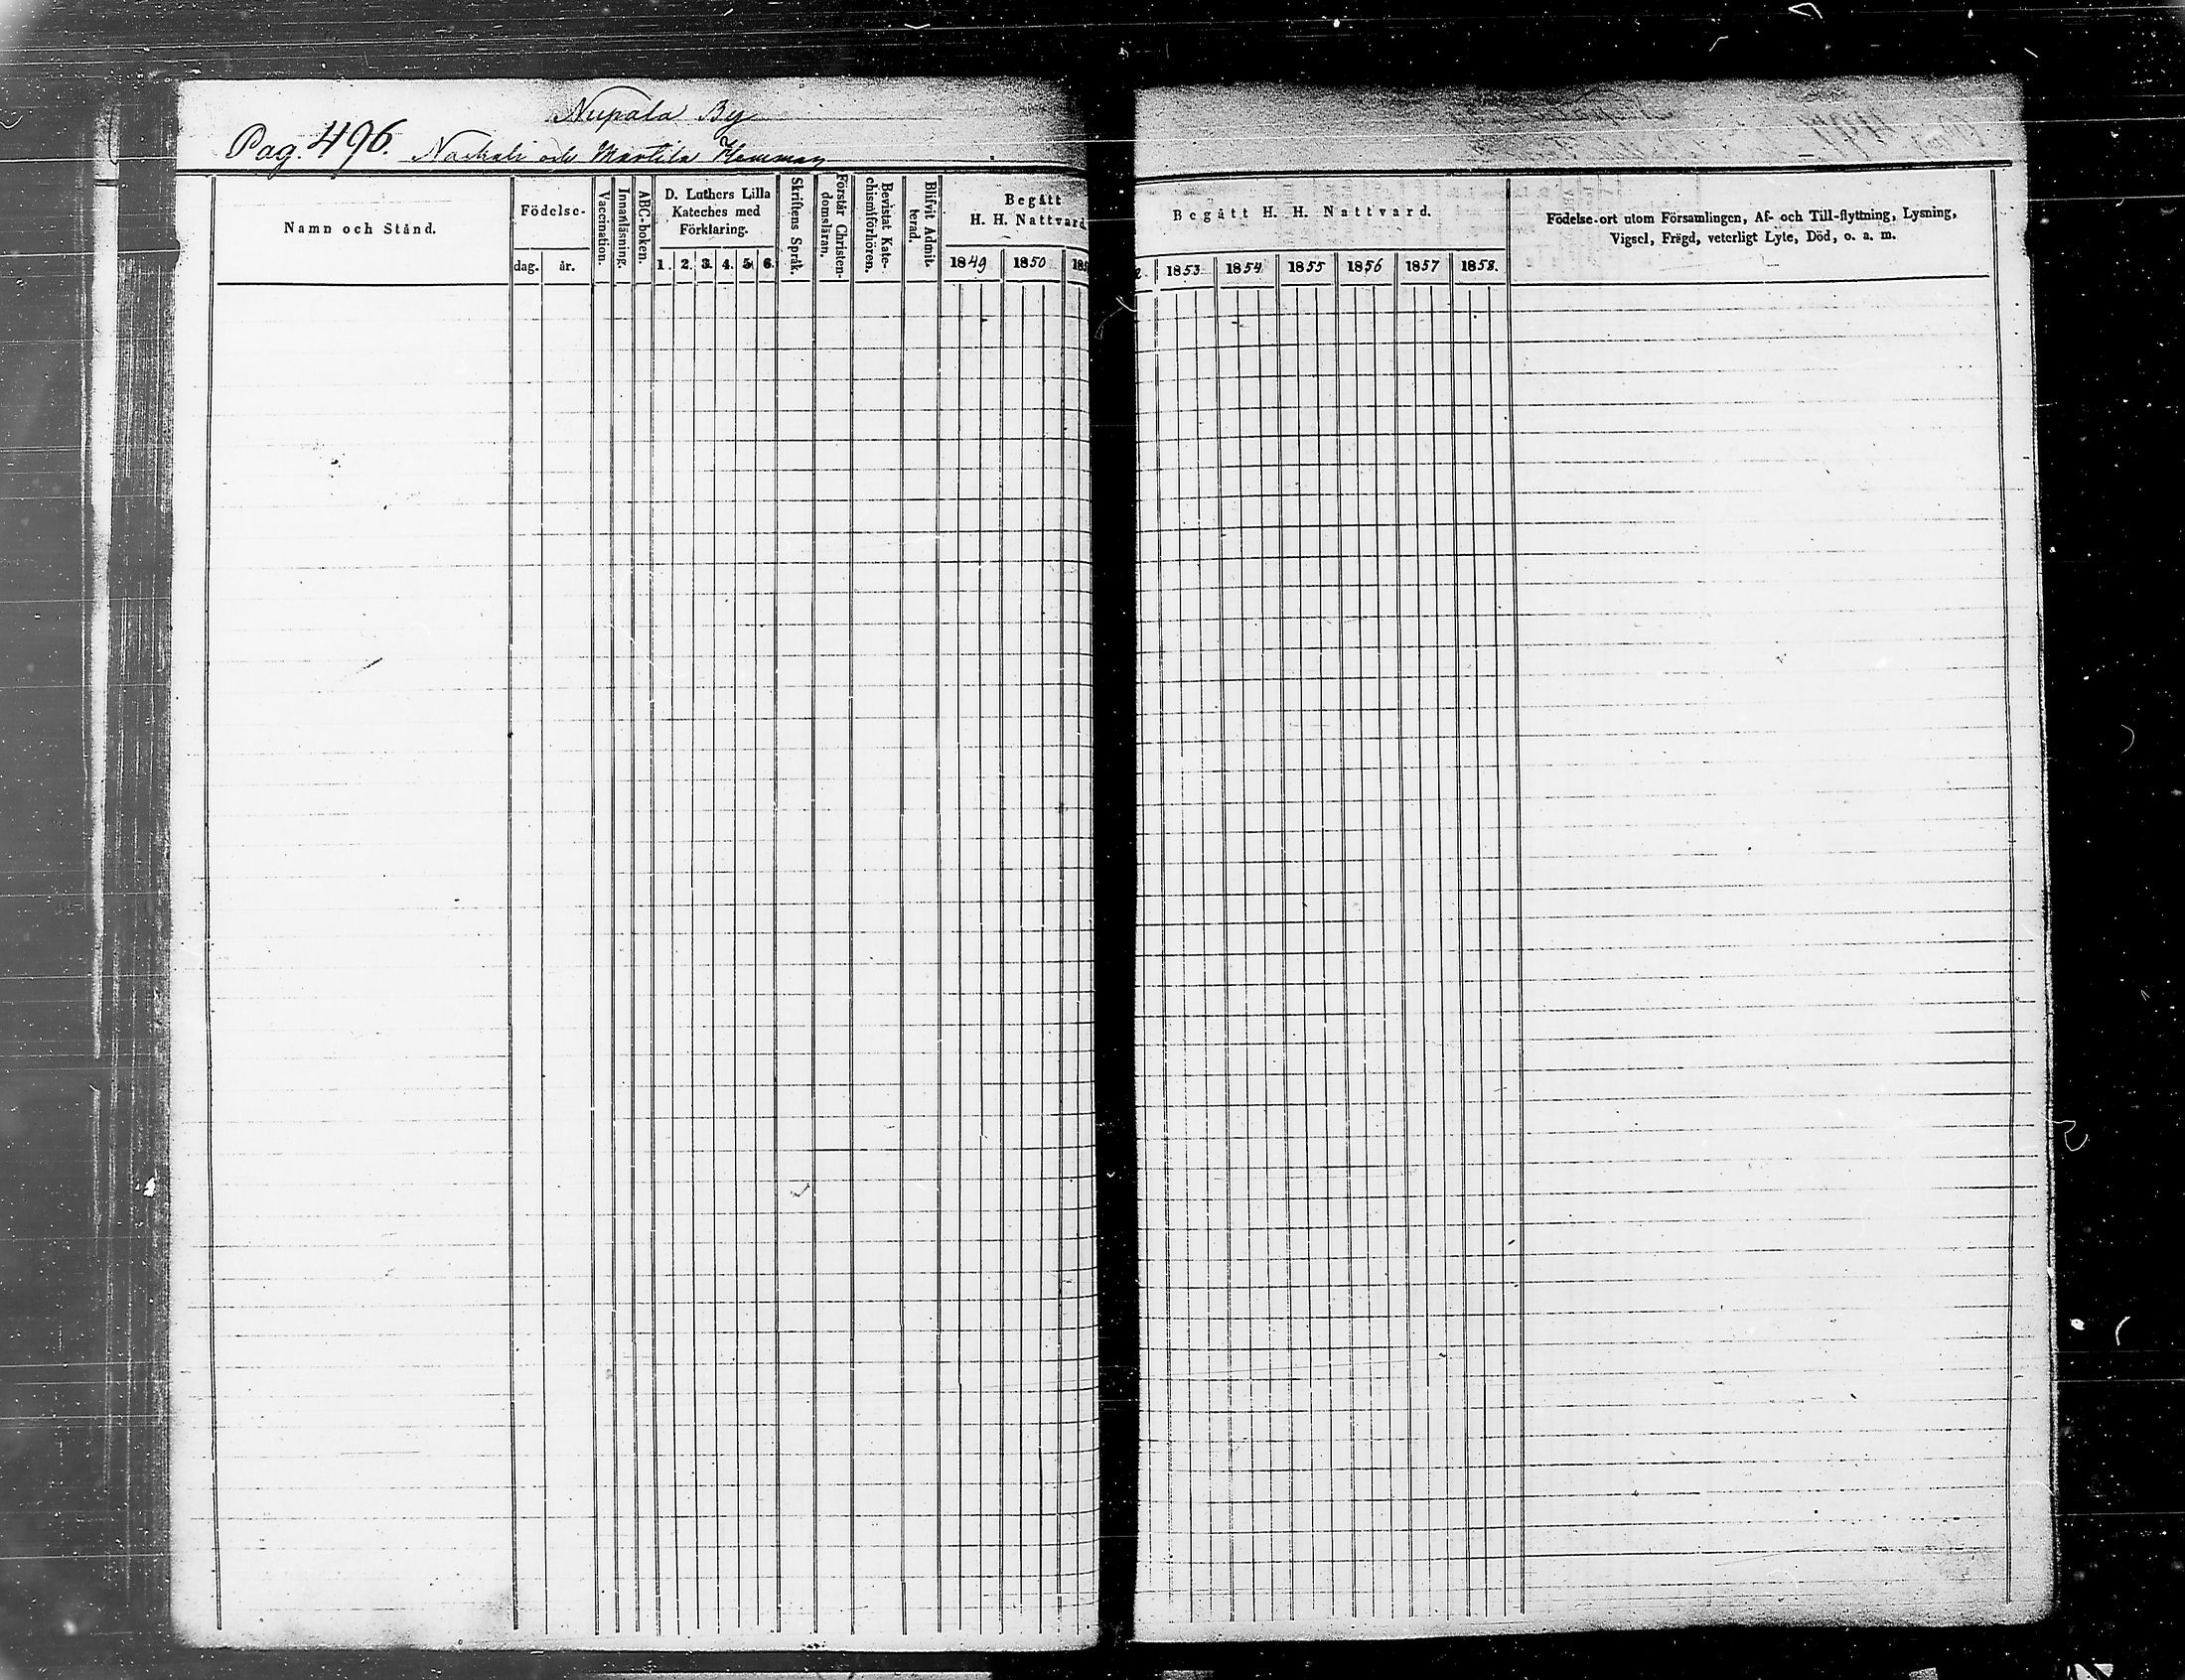 Nupala By
Pag. 496. Nackali och Martila Hemman
Namn och Stånd.
Födelse-
dag. år.
Vaccination.
Innanläsning.
ABC-boken.
D. Luthers Lilla
Kateches med
Förklaring.
1. 2. 3. 4. 5. 6.
Skriftens Språk.
Förstår Christen-
domsläran.
Bevistat Kate-
chismiförhören.
Blifvit Admit-
terad.
Begått
H. H. Nattvard.
1849 1850 185
Begått H. H. Nattvard.
2. 1853 1854 1855 1856 1857 1858.
Födelse-ort utom Församlingen, Af- och Till-flyttning, Lysning,
Vigsel, Frägd, veterligt Lyte, Död, o. a. m.